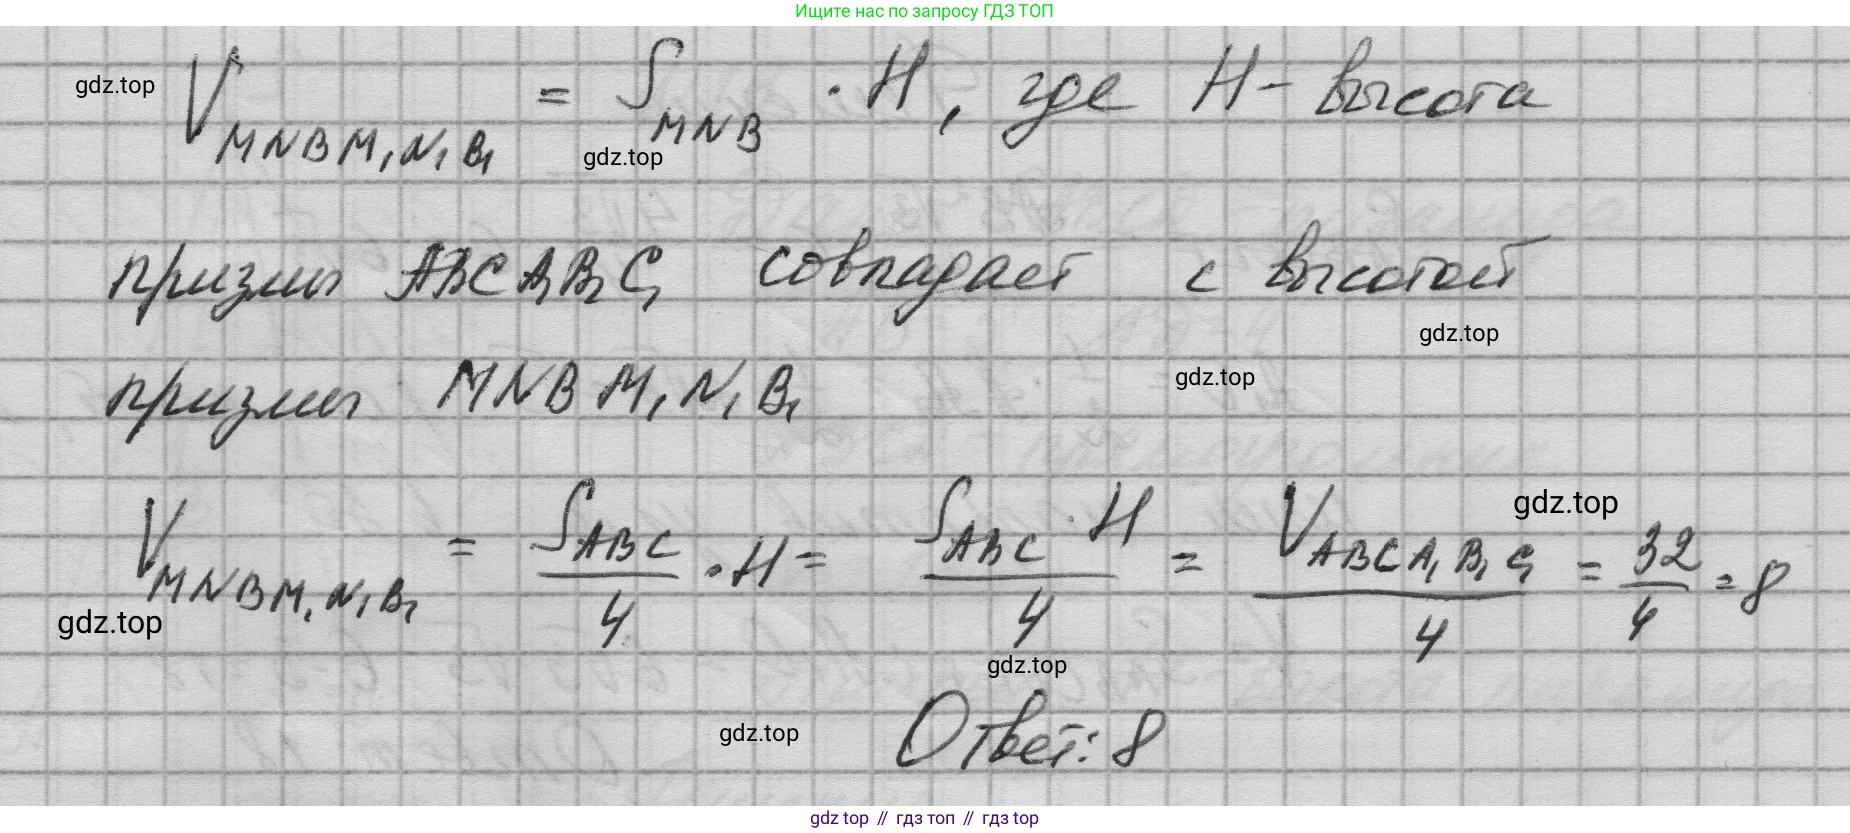 Ищите нас по запросу ГДЗ ТОП
gdz.top
V_MNBM₁N₁B₁ = S_MNB · H, где H - высота
gdz.top
призмы ABCA₁B₁C₁ совпадает с высотой
gdz.top
призмы MNBM₁N₁B₁
gdz.top
gdz.top
V_MNBM₁N₁B₁ = S_ABC/4 · H = S_ABC · H/4 = V_ABCA₁B₁C₁/4 = 32/4 = 8
gdz.top
gdz.top
gdz.top
Ответ: 8
gdz top // гдз топ // gdz.top